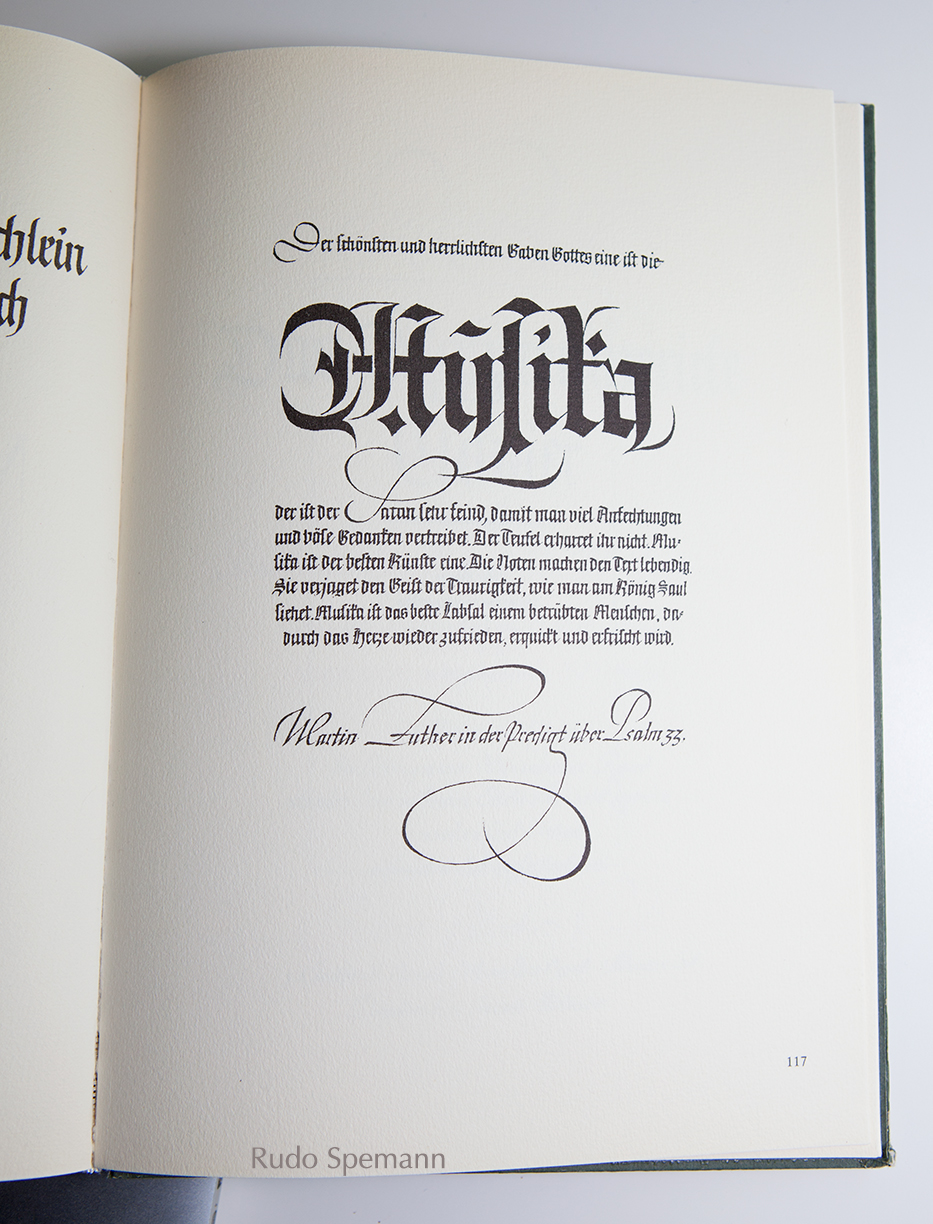 chlein
ch
Der schönsten und herrlichsten Gaben Gottes eine ist die
Musika
der ist der Satan sehr feind, damit man viel Anfechtungen
und böse Gedanken vertreibet. Der Teufel erharret ihr nicht. Mu-
sika ist der besten Künste eine. Die Noten machen den Text lebendig.
Sie verjaget den Geist der Traurigkeit, wie man am König Saul
siehet. Musika ist das beste Labsal einem betrübten Menschen, da-
durch das Herze wieder zufrieden, erquickt und erfrischt wird.
Martin Luther in der Predigt über Psalm 33.
117
Rudo Spemann